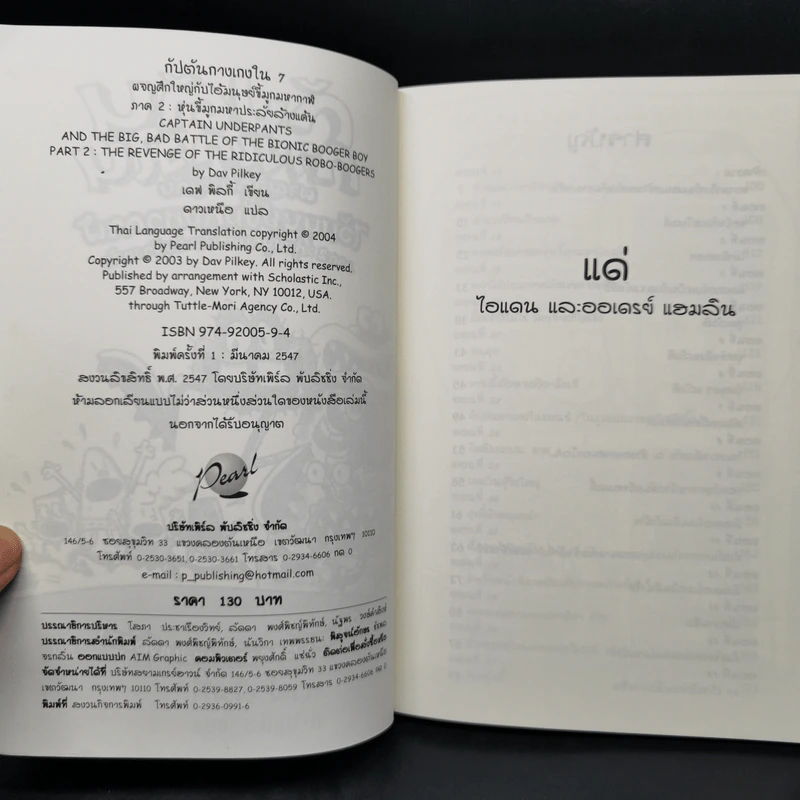 กัปตันกางเกงใน 7
ผจญศึกใหญ่กับไอ้มนุษย์ขี้มูกมหากาฬ
ภาค 2 : หุ่นขี้มูกมหาประลัยล้างแค้น
CAPTAIN UNDERPANTS
AND THE BIG, BAD BATTLE OF THE BIONIC BOOGER BOY
PART 2 : THE REVENGE OF THE RIDICULOUS ROBO-BOOGERS
by Dav Pilkey
เดฟ พิลกี้ เขียน
ดาวเหนือ แปล
Thai Language Translation copyright © 2004
by Pearl Publishing Co., Ltd.
Copyright © 2003 by Dav Pilkey. All rights reserved.
Published by arrangement with Scholastic Inc.,
557 Broadway, New York, NY 10012, USA.
through Tuttle-Mori Agency Co., Ltd.
ISBN 974-92005-9-4
พิมพ์ครั้งที่ 1 : มีนาคม 2547
สงวนลิขสิทธิ์ พ.ศ. 2547 โดยบริษัทเพิร์ล พับลิชชิ่ง จำกัด
ห้ามลอกเลียนแบบไม่ว่าส่วนหนึ่งส่วนใดของหนังสือเล่มนี้
นอกจากได้รับอนุญาต
Pearl
บริษัทเพิร์ล พับลิชชิ่ง จำกัด
146/5-6 ซอยสุขุมวิท 33 แขวงคลองตันเหนือ เขตวัฒนา กรุงเทพฯ 10110
โทรศัพท์ 0-2530-3651, 0-2530-3661 โทรสาร 0-2934-6606 กด 0
e-mail : p_publishing@hotmail.com
ราคา 130 บาท
บรรณาธิการบริหาร โสภา ประชาเรืองวิทย์, ลัดดา พงศ์พิชญ์พิทักษ์, นัฐพร
บรรณาธิการสำนักพิมพ์ ลัดดา พงศ์พิชญ์พิทักษ์, นันวิกา เทพพรรธนะ พิสูจน์อักษร
จรกลิ่น ออกแบบปก AIM Graphic คอมพิวเตอร์ พยุงศักดิ์ แซ่ฉั่ว ติดต่อเพื่อสั่งซื้อหรือ
จัดจำหน่ายได้ที่ บริษัทสยามเกรย์ฮาวน์ จำกัด 146/5-6 ซอยสุขุมวิท 33 แขวงคลองตันเหนือ
เขตวัฒนา กรุงเทพฯ 10110 โทรศัพท์ 0-2539-8827, 0-2539-8059 โทรสาร 0-2934-6606 กด 0
พิมพ์ที่ สงวนกิจการพิมพ์ โทรศัพท์ 0-2936-0991-6
แด่
ไอแดน และออเดรย์ แฮมลิน